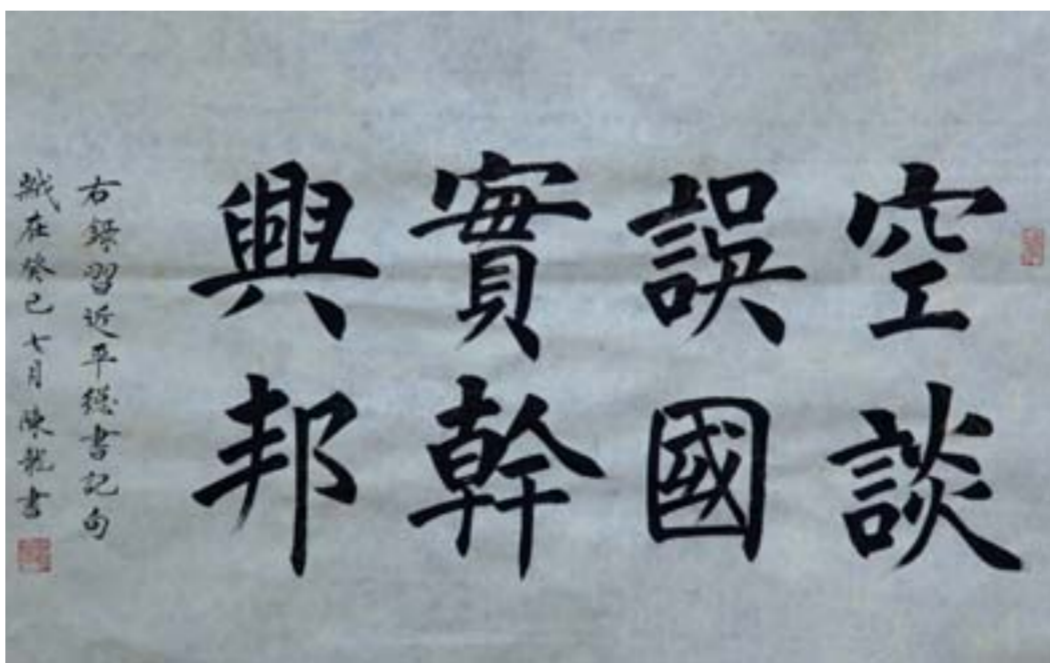 空談
誤國
實幹
興邦
右錄習近平總書記句
歲在癸巳七月陳龍書